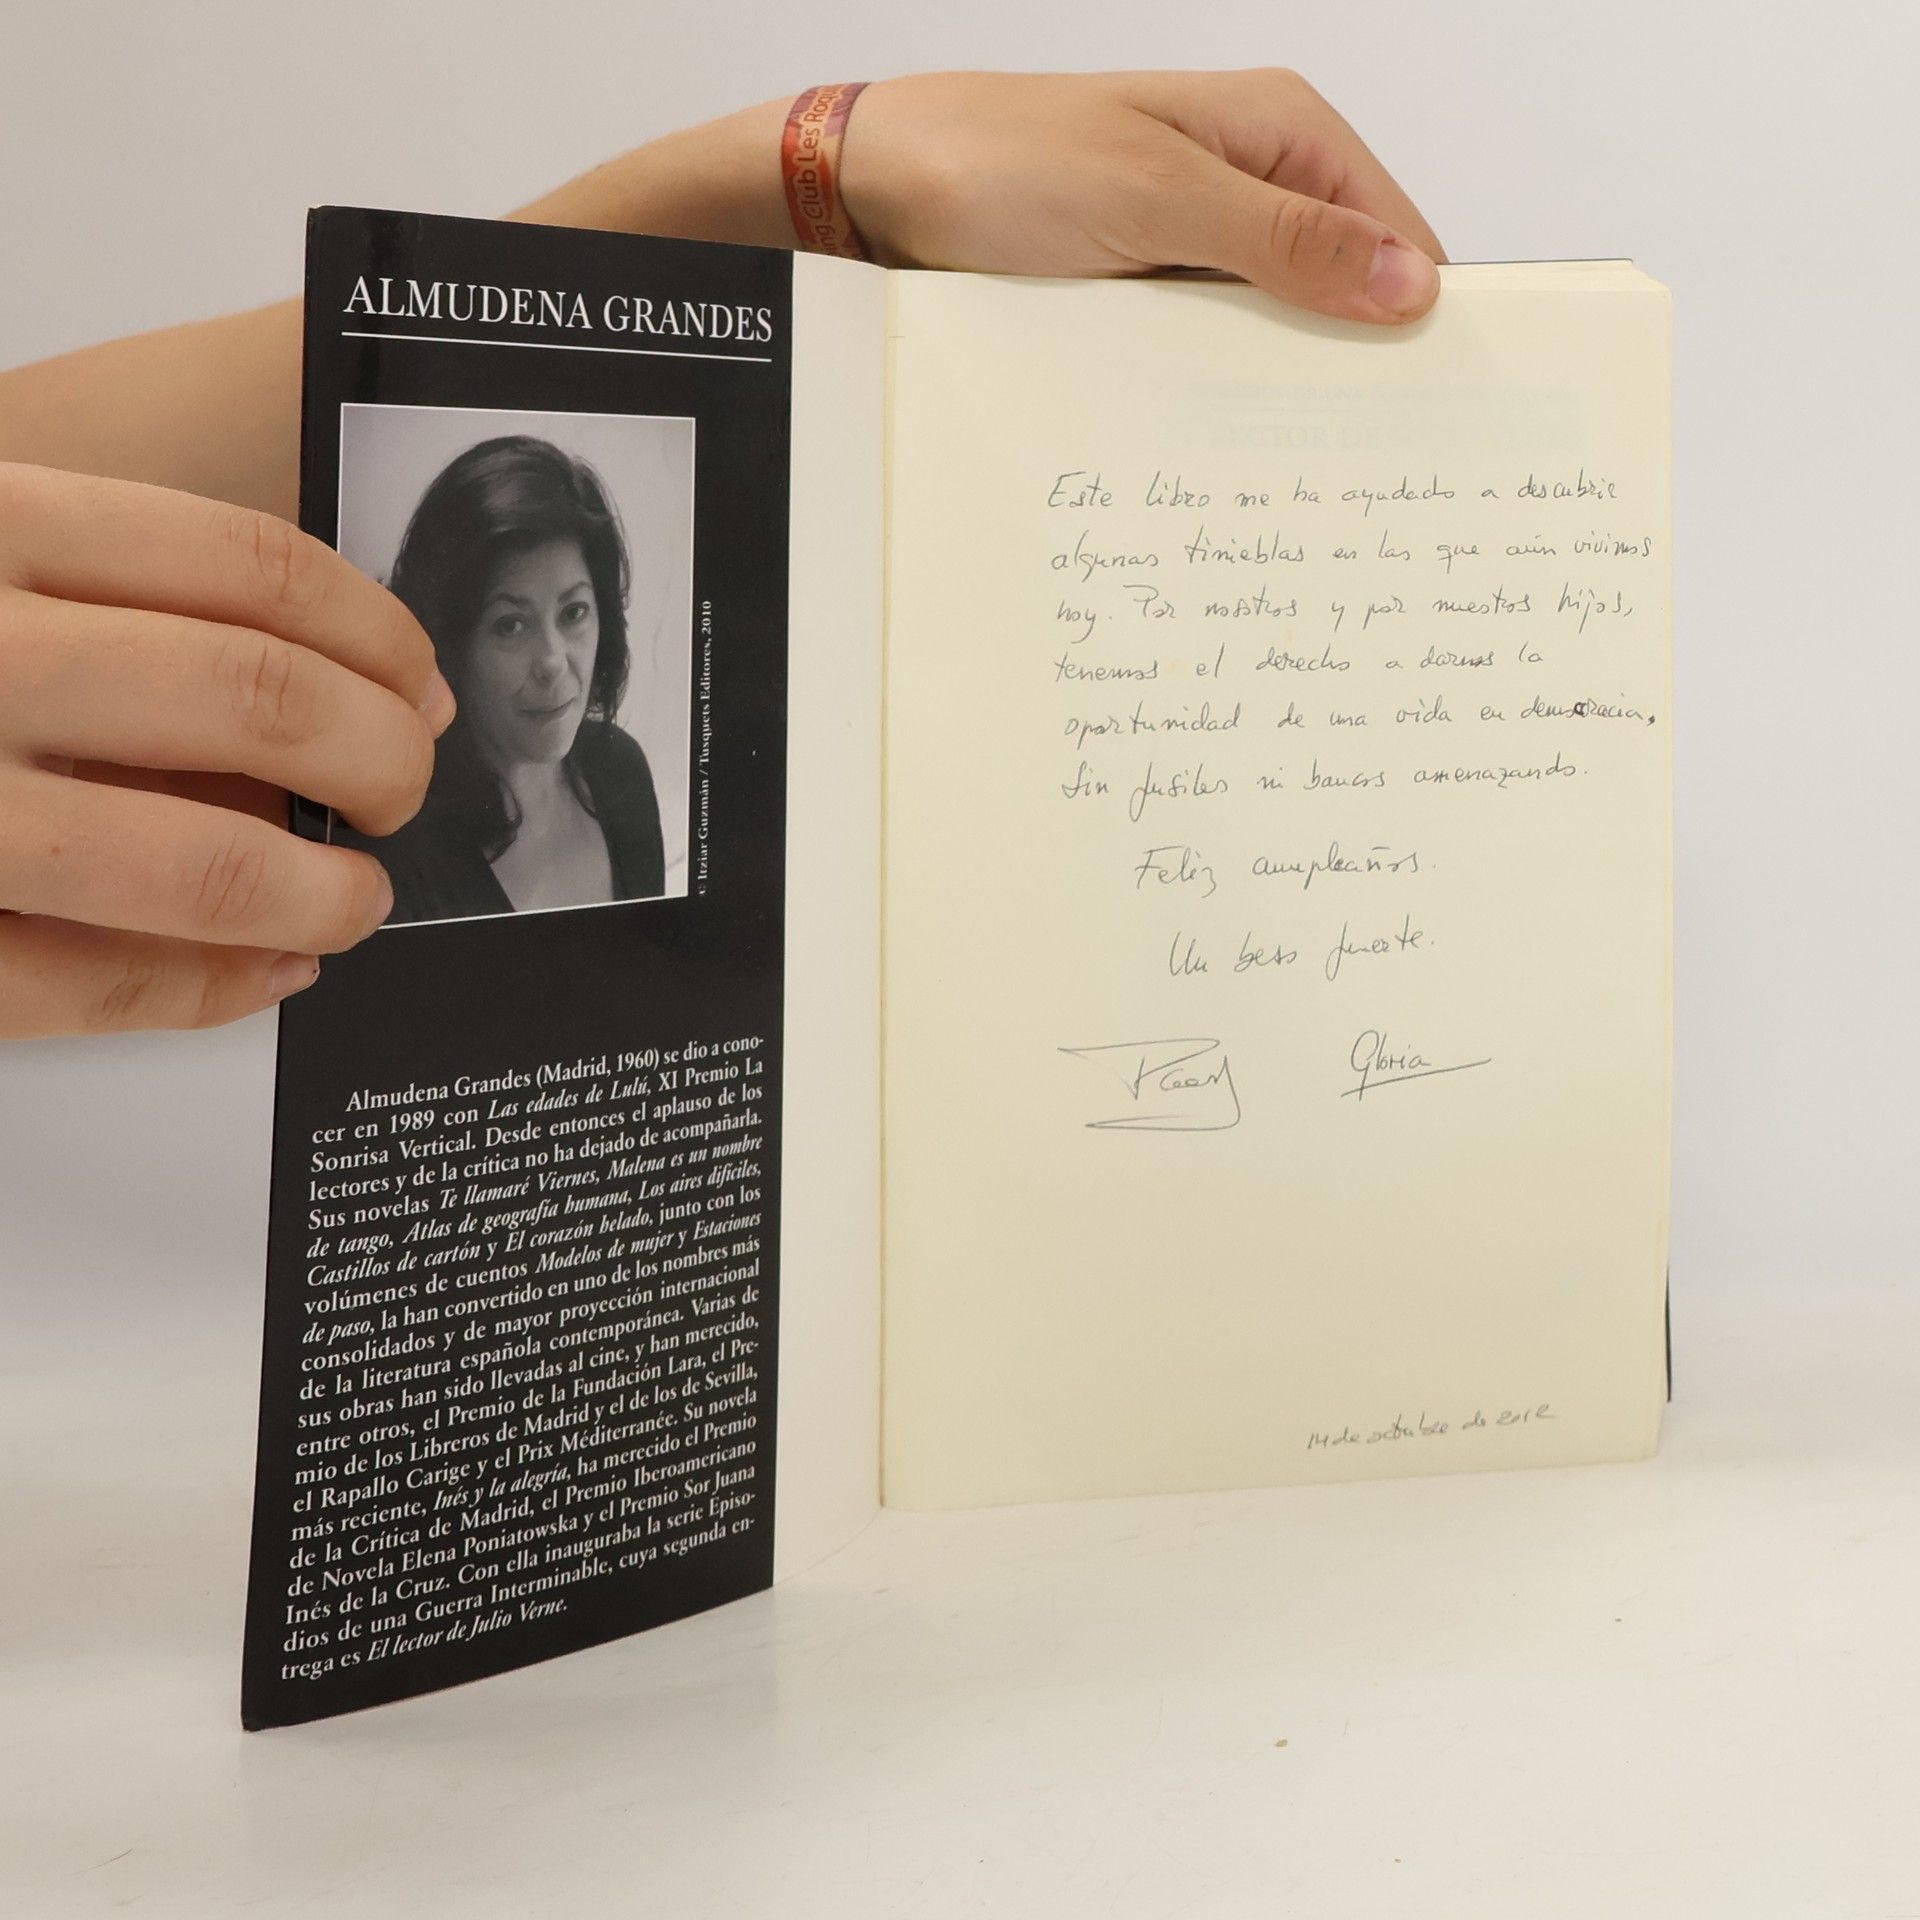 ing Club Les Roqu
ALMUDENA GRANDES
© Itziar Guzmán / Tusquets Editores, 2010
Almudena Grandes (Madrid, 1960) se dio a cono-
cer en 1989 con Las edades de Lulú, XI Premio La
Sonrisa Vertical. Desde entonces el aplauso de los
lectores y de la crítica no ha dejado de acompañarla.
Sus novelas Te llamaré Viernes, Malena es un nombre
de tango, Atlas de geografía humana, Los aires difíciles,
Castillos de cartón y El corazón helado, junto con los
volúmenes de cuentos Modelos de mujer y Estaciones
de paso, la han convertido en uno de los nombres más
consolidados y de mayor proyección internacional
de la literatura española contemporánea. Varias de
sus obras han sido llevadas al cine, y han merecido,
entre otros, el Premio de la Fundación Lara, el Pre-
mio de los Libreros de Madrid y el de los de Sevilla,
el Rapallo Carige y el Prix Méditerranée. Su novela
más reciente, Inés y la alegría, ha merecido el Premio
de la Crítica de Madrid, el Premio Iberoamericano
de Novela Elena Poniatowska y el Premio Sor Juana
Inés de la Cruz. Con ella inauguraba la serie Episo-
dios de una Guerra Interminable, cuya segunda en-
trega es El lector de Julio Verne.
Este libro me ha ayudado a descubrir
algunas tinieblas en las que aún vivimos
hoy. Por nosotros y por nuestros hijos,
tenemos el derecho a darnos la
oportunidad de una vida en democracia,
sin fusiles ni bancos amenazando.
Feliz cumpleaños.
Un beso fuerte.
Gloria
14 de octubre de 2012